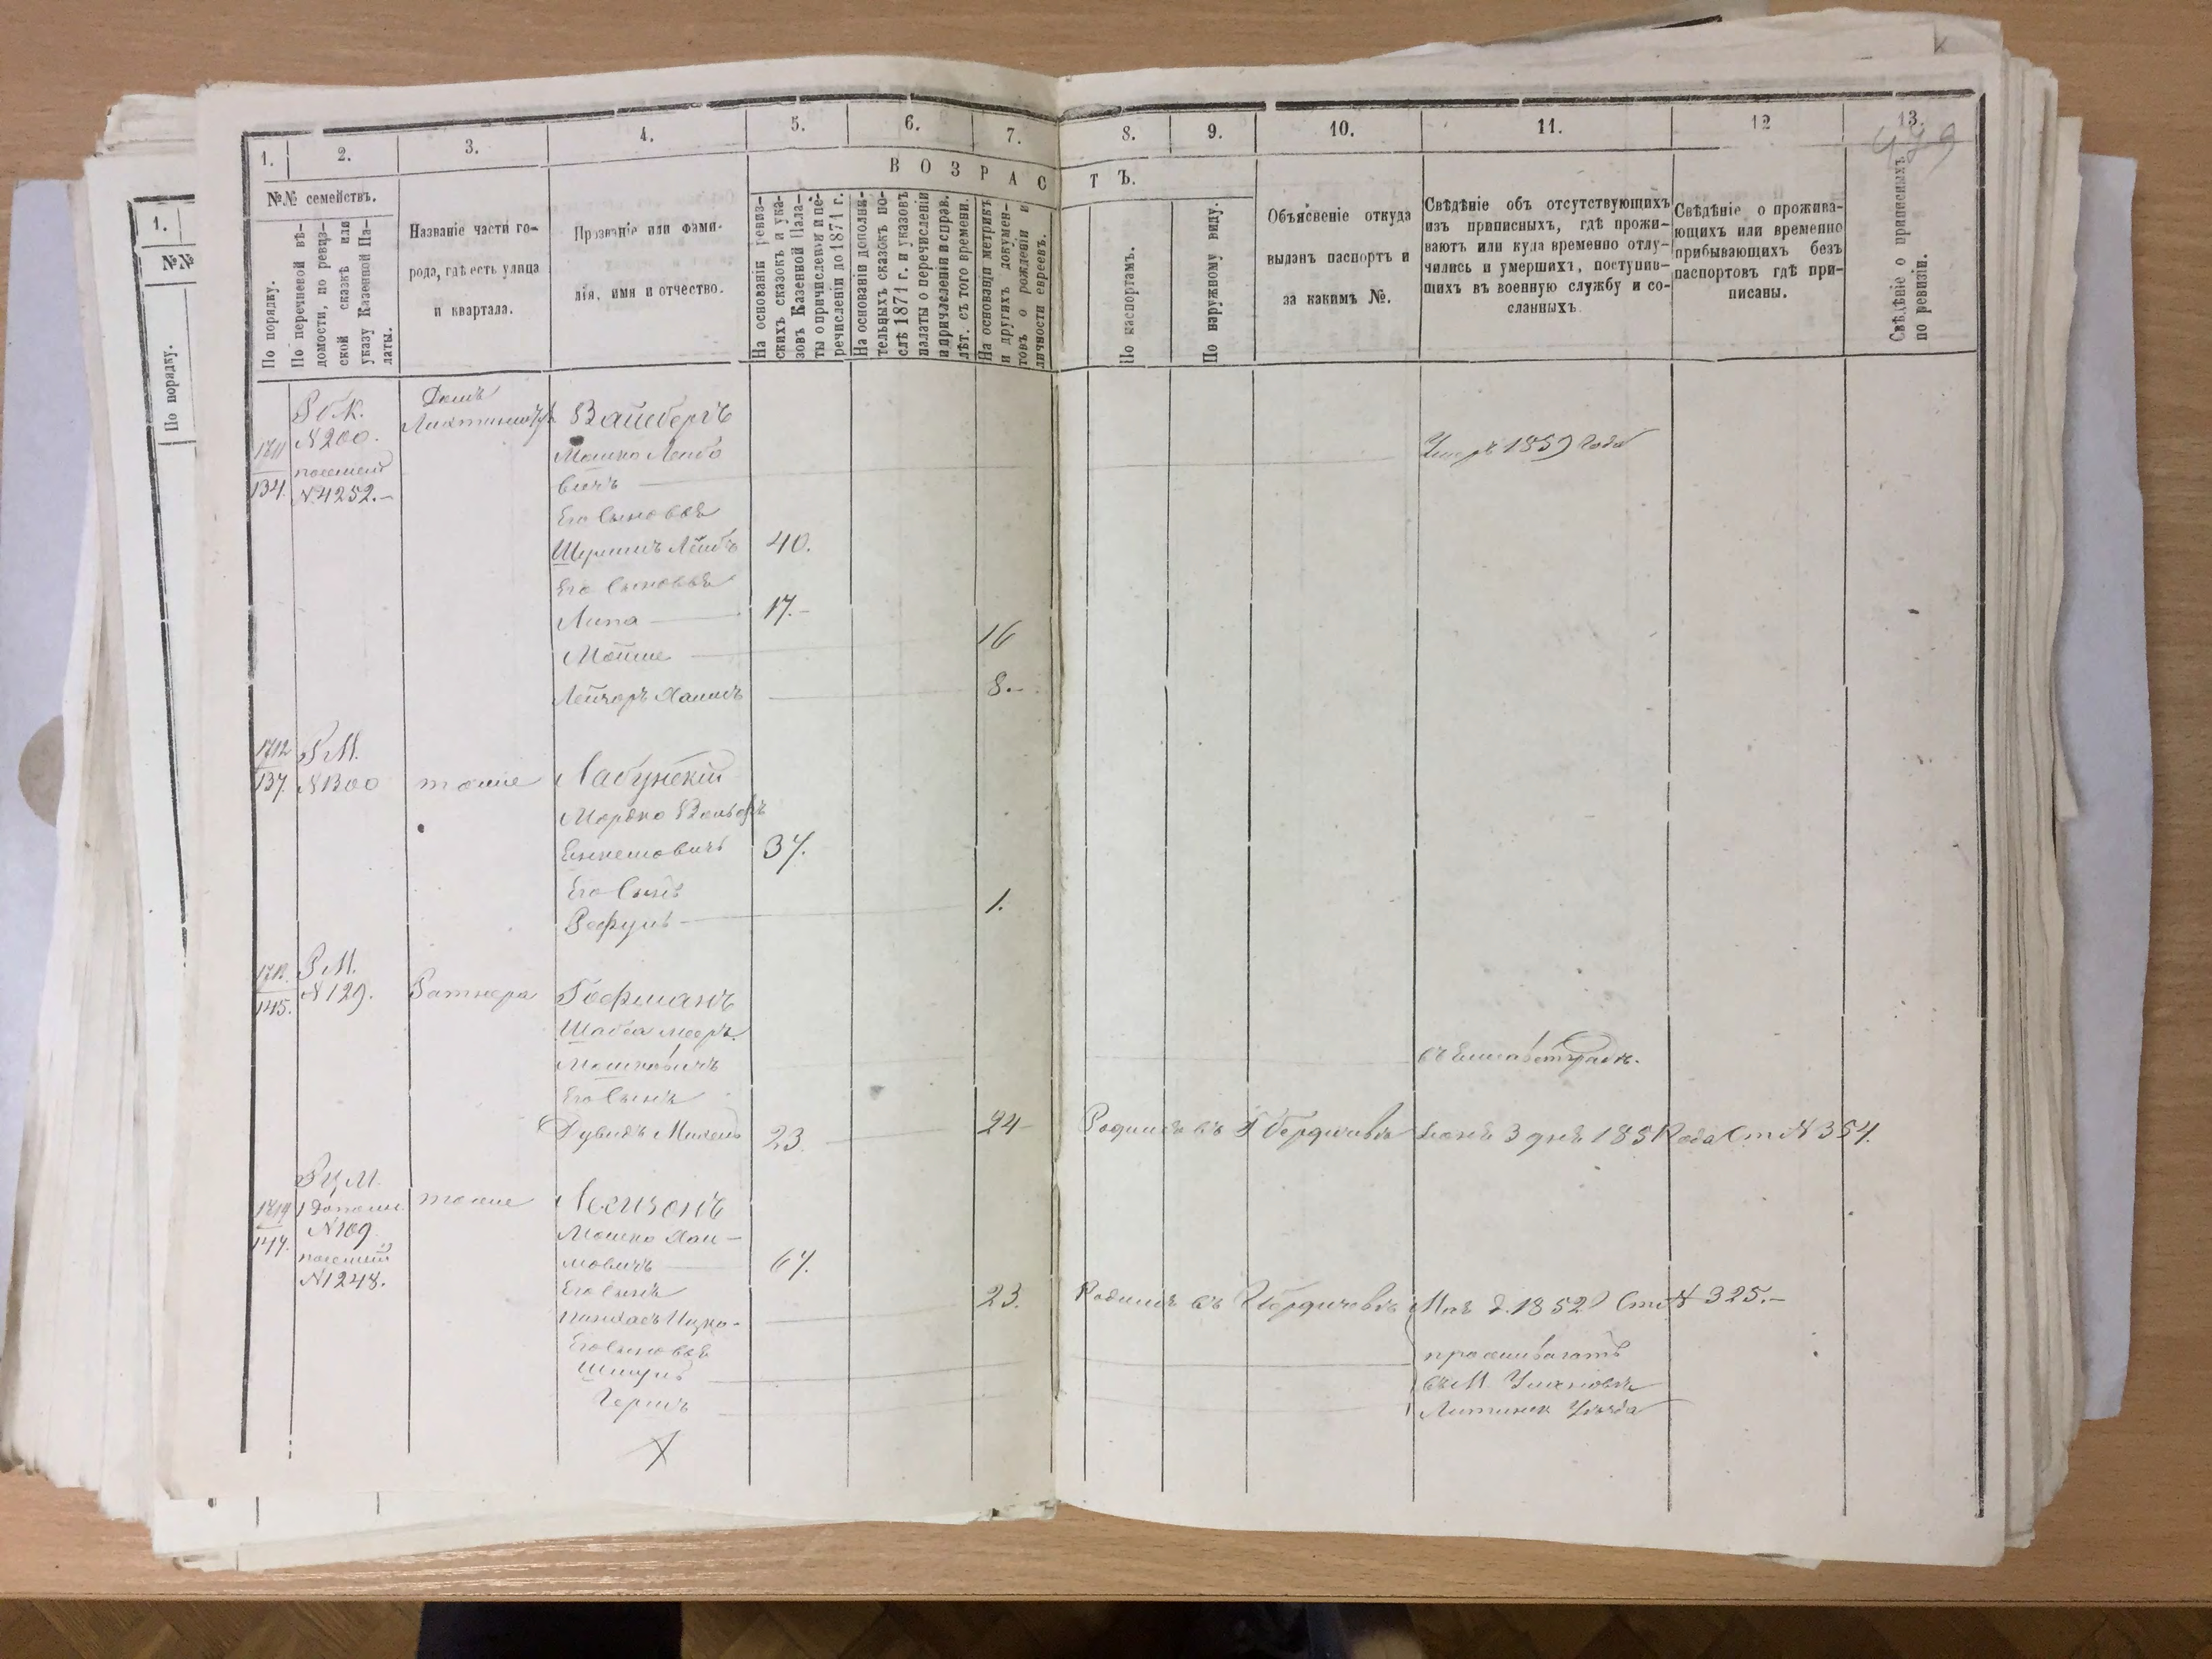 1.
№№
По порядку.
1.
2.
3.
4.
5.
6.
7.
8.
9.
10.
11.
12
13.
479
ВОЗРАСТЪ.
№№ семействъ.
По порядку.
По перечневой вѣ-
домости, по ревиз-
ской сказкѣ или
указу Казенной Па-
латы.
Названіе части го-
рода, гдѣ есть улица
и квартала.
Прозваніе или фами-
лія, имя и отчество.
На основаніи ревиз-
скихъ сказокъ и ука-
зовъ Казенной Пала-
ты о причисленіи и пе-
речисленіи до 1871 г.
На основаніи дополни-
тельныхъ сказокъ по-
слѣ 1871 г. и указовъ
палаты о перечисленіи
и причисленіи и справ.
лѣт. съ того времени.
На основаніи метрикъ
и другихъ докумен-
товъ о рожденіи и
личности евреевъ.
По паспортамъ.
По наружному виду.
Объясненіе откуда
выданъ паспортъ и
за какимъ №.
Свѣдѣніе объ отсутствующихъ
изъ приписныхъ, гдѣ прожи-
ваютъ или куда временно отлу-
чились и умершихъ, поступив-
щихъ въ военную службу и со-
сланныхъ
Свѣдѣніе о прожива-
ющихъ или временно
прибывающихъ безъ
паспортовъ гдѣ при-
писаны.
Свѣдѣніе о приписныхъ
по ревизіи.
134.
N 200.
N 4252.-
Домъ
Вайсбергъ
Мошко Лейбо
вичъ
Умеръ 1859 года
Его сыновья
Шулимъ Лейбъ 40.
Его сыновья
Липа 17.-
Мойше 16
8.-
1712
137.
Р М.
N 1300
тоже
Лабунскій
Мордко Вольфъ
37.
Его сынъ
Рефулъ 1.
145.
Р М.
N 129.
Ратнера
Гофманъ
Шабса Мееръ
Мошковичъ
въ Елисаветградѣ.
Его сынъ
Дувидъ Михель 23. 24 Родился въ Г Бердичевѣ Іюня 3 дня 185 года Ст N 354.
N 109
N 1248.
тоже
Мошко Хаи-
мовичъ 67.
Его сынъ
23. Родился въ Г Бердичевѣ Мая д. 1852 Ст N 325.-
Его сыновья
Шмуль
Гершъ
проживаютъ
въ М. Улановѣ
Литинск Уѣзда
X